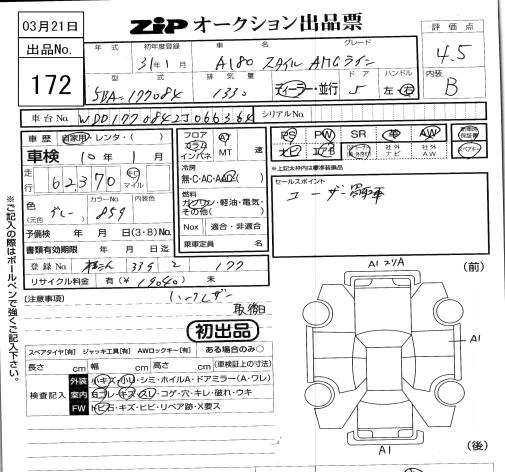 03月21日
ZIP オークション出品票
評価点
4.5
出品No.
172
年式 初年度登録 車名 グレード
31年1月 A180 スタイル AMGライン
型式 排気量 ドア ハンドル
5BA-177084 1330 ディーラー・並行 5 左・右
内装
B
車台No. WDD1770842J066364 シリアルNo.
車歴 自家用・レンタ・( )
車検 10年1月
走行 62,370 km マイル
色 (元色) グレー カラーNo. 859 内装色
予備検 年 月 日(3・8)Mo.
書類有効期限 年 月 日迄
登録No. 339 177
リサイクル料金 有(¥ ) 未
フロア コラム インパネ AT MT 速
冷房 無・C・AC・AAC
燃料 ガソリン・軽油・電気・その他( )
Nox 適合・非適合
乗車定員 名
PS PW SR 革 AW 新車時保証書
ナビ エアB 社外ナビ 社外AW スペアキー
※上記太枠内は標準装備品
セールスポイント
ユーザー買取車
(注意事項)
取後日
初出品
スペアタイヤ[有] ジャッキ工具[有] AWロックキー[有] ある場合のみ○
長さ cm 幅 cm 高さ cm (車検証上の寸法)
検査記入
外装 小キズ・小凹・シミ・ホイルA・ドアミラー(A・ワレ)
室内 ヨゴレ・キズ・スレ・コゲ・穴・キレ・破れ・ウキ
FW トビ石・キズ・ヒビ・リペア跡・X要ス
※ご記入の際はボールペンで強くご記入下さい。
A1
(前)
A1
A1
(後)